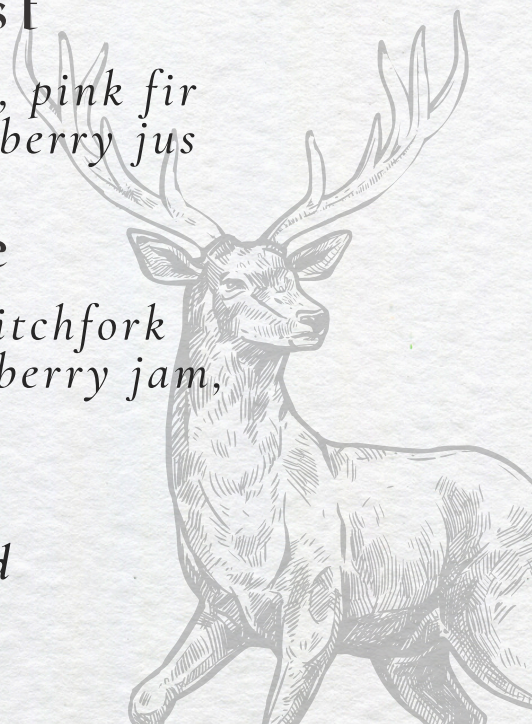 , pink fir
berry jus
itchfork
berry jam,